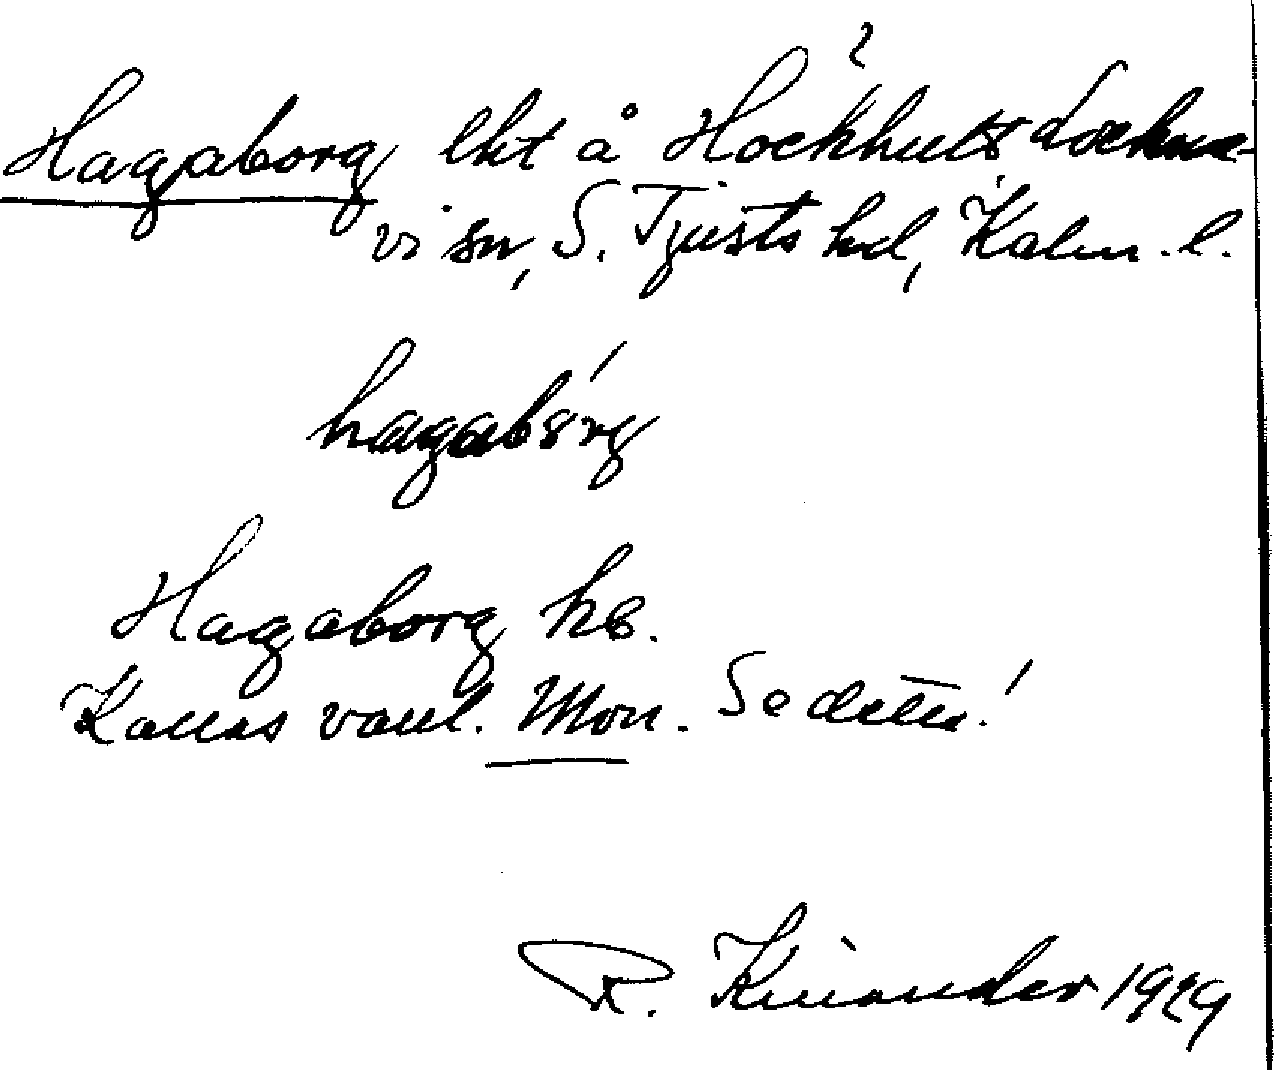 ?
Hagaborg lht å Hockhults Lockne-
vi sn, S. Tjusts hd, Kalm. l.
hagabórg
Hagaborg hs.
Kallas vanl. Mon. Se detta!
R. Kinander 1929